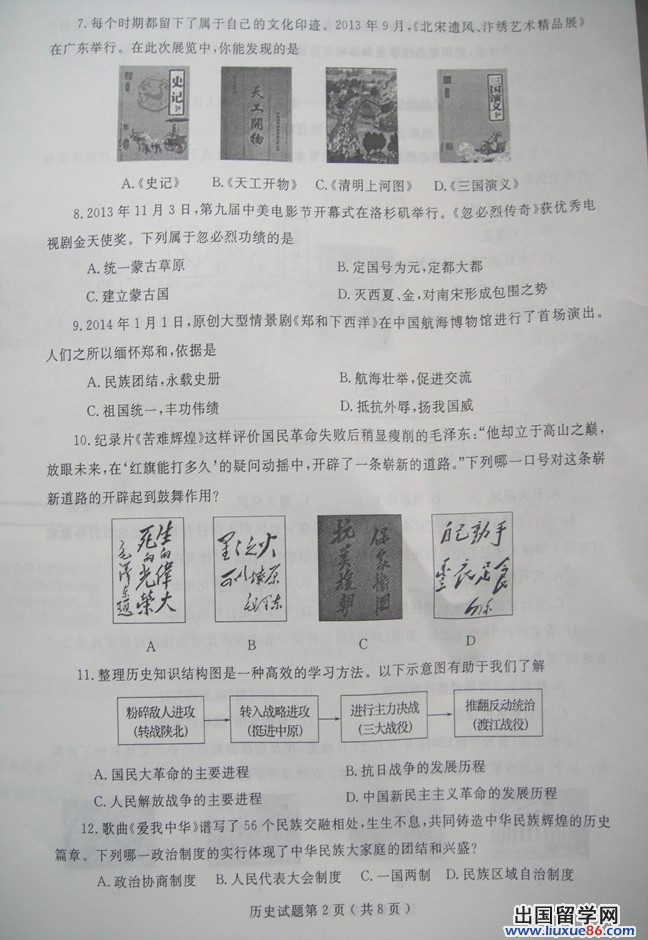 7.每个时期都留下了属于自己的文化印迹。2013年9月,《北宋遗风、汴绣艺术精品展》
在广东举行。在此次展览中,你能发现的是
史记
天工開物
三国演义
A.《史记》 B.《天工开物》 C.《清明上河图》 D.《三国演义》
8.2013年11月3日,第九届中美电影节开幕式在洛杉矶举行。《忽必烈传奇》获优秀电
视剧金天使奖。下列属于忽必烈功绩的是
A.统一蒙古草原 B.定国号为元,定都大都
C.建立蒙古国 D.灭西夏、金,对南宋形成包围之势
9.2014年1月1日,原创大型情景剧《郑和下西洋》在中国航海博物馆进行了首场演出。
人们之所以缅怀郑和,依据是
A.民族团结,永载史册 B.航海壮举,促进交流
C.祖国统一,丰功伟绩 D.抵抗外辱,扬我国威
10.纪录片《苦难辉煌》这样评价国民革命失败后稍显瘦削的毛泽东:“他却立于高山之巅,
放眼未来,在‘红旗能打多久’的疑问动摇中,开辟了一条崭新的道路。”下列哪一口号对这条崭
新道路的开辟起到鼓舞作用?
生的偉大
死的光榮
毛澤东題
星星之火
可以燎原
毛泽东
抗美援朝
保家衛國
自己動手
豐衣足食
A B C D
11.整理历史知识结构图是一种高效的学习方法。以下示意图有助于我们了解
粉碎敌人进攻
(转战陕北)
转入战略进攻
(挺进中原)
进行主力决战
(三大战役)
推翻反动统治
(渡江战役)
A.国民大革命的主要进程 B.抗日战争的发展历程
C.人民解放战争的主要进程 D.中国新民主主义革命的发展历程
12.歌曲《爱我中华》谱写了56个民族交融相处,生生不息,共同铸造中华民族辉煌的历史
篇章。下列哪一政治制度的实行体现了中华民族大家庭的团结和兴盛?
A.政治协商制度 B.人民代表大会制度 C.一国两制 D.民族区域自治制度
历史试题第2页(共8页)
出国留学网
www.liuxue86.com